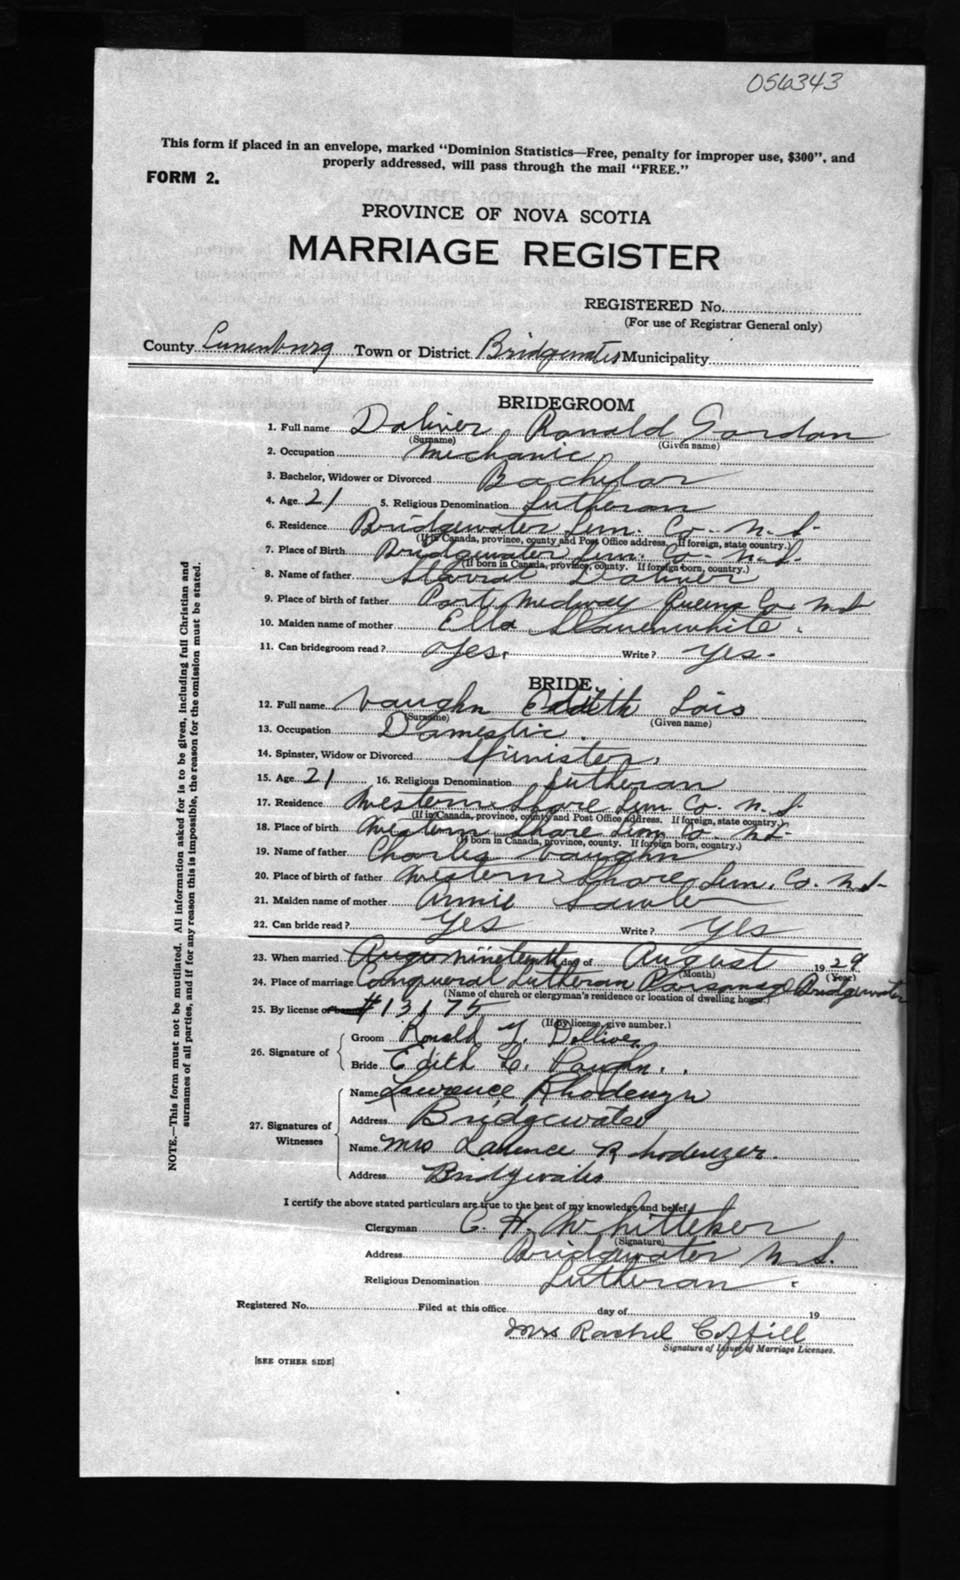 056343
This form if placed in an envelope, marked "Dominion Statistics—Free, penalty for improper use, $300", and
properly addressed, will pass through the mail "FREE."
FORM 2.
PROVINCE OF NOVA SCOTIA
MARRIAGE REGISTER
REGISTERED No.
(For use of Registrar General only)
County Lunenburg Town or District Bridgewater Municipality
BRIDEGROOM
1. Full name Doliver, Ronald Gordon
(Surname) (Given name)
2. Occupation Mechanic
3. Bachelor, Widower or Divorced Bachelor
4. Age 21 5. Religious Denomination Lutheran
6. Residence Bridgewater Lun. Co. N.S.
(If in Canada, province, county and Post Office address. If foreign, state country.)
7. Place of Birth Bridgewater Lun. Co. N.S.
(If born in Canada, province, county. If foreign born, country.)
8. Name of father Doliver
9. Place of birth of father Port Medway Queens Co. N.S
10. Maiden name of mother Ella Slauenwhite.
11. Can bridegroom read? Yes. Write? Yes.
BRIDE.
12. Full name Vaughn Edith Lois
(Surname) (Given name)
13. Occupation Domestic.
14. Spinster, Widow or Divorced Spinister.
15. Age 21 16. Religious Denomination Lutheran
17. Residence Western Shore Lun. Co. N.S
(If in Canada, province, county and Post Office address. If foreign, state country.)
18. Place of birth Western Shore Lun. Co. N.S.
(If born in Canada, province, county. If foreign born, country.)
19. Name of father Charles Vaughn
20. Place of birth of father Western Shore Lun. Co. N.S.
21. Maiden name of mother Annie
22. Can bride read? Yes Write? Yes
23. When married nineteenth day of August 1929
(Month) (Year)
24. Place of marriage Lutheran Parsonage Bridgewater
(Name of church or clergyman's residence or location of dwelling house)
25. By license or #13175
(If by license, give number.)
26. Signature of
Groom Ronald Y. Dolliver
Bride Edith L. Vaughn.
27. Signatures of Witnesses
Name Lawrence Rhodenyzr
Address Bridgewater
Name Mrs Rhodenyzer.
Address Bridgewater
I certify the above stated particulars are true to the best of my knowledge and belief.
Clergyman C. H. Whitteker
(Signature)
Address Bridgewater N.S.
Religious Denomination Lutheran.
Registered No. Filed at this office day of 19
Mrs Rachel Coffill
Signature of Issuer of Marriage Licenses.
[SEE OTHER SIDE]
NOTE.—This form must not be mutilated. All information asked for is to be given, including full Christian and
surnames of all parties, and if for any reason this is impossible, the reason for the omission must be stated.